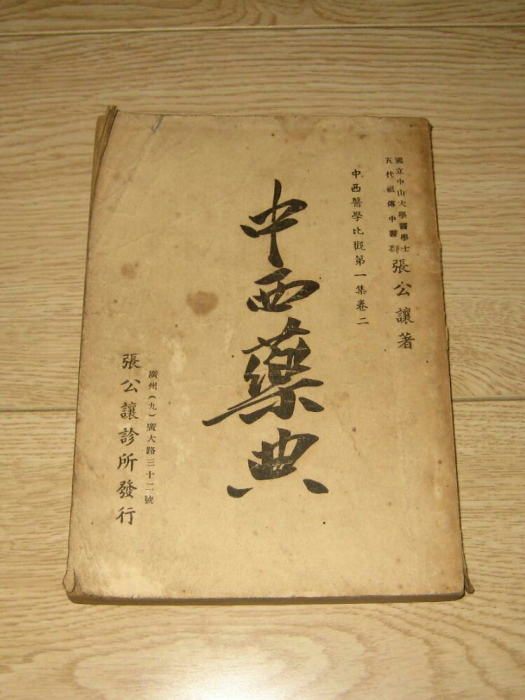 國立中山大學醫學士
五代祖傳中醫
張公讓著
中西醫學比觀第一集卷二
中西藥典
廣州（九）廣大路三十二號
張公讓診所發行